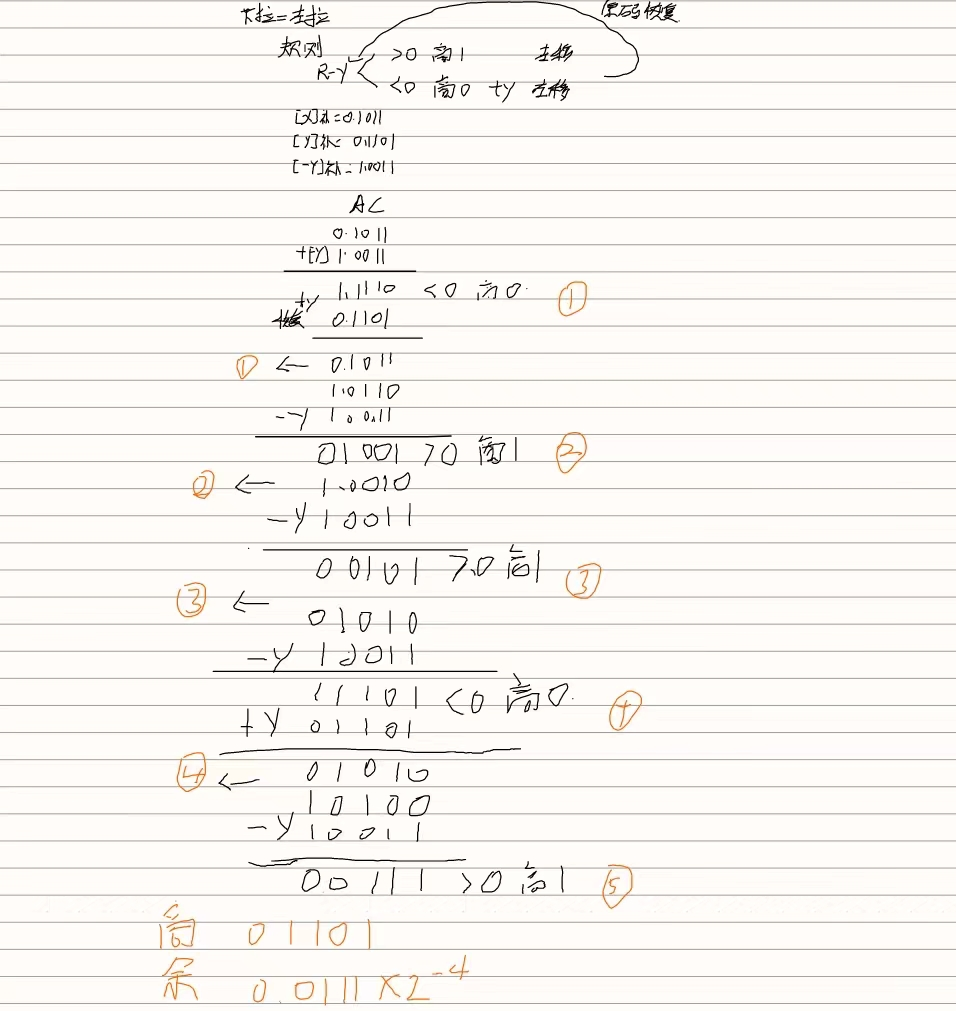 原码恢复
规则
R-y
>0 商1 左移
<0 商0 +y 左移
[X]补=0.1011
[Y]补= 0.1101
[-Y]补=1.0011
AC
0.1011
+[Y] 1.0011
1.1110 <0 商0. ①
+y
恢复 0.1101
① ← 0.1011
1.0110
-y 1.0011
01001 >0 商1 ②
② ← 1.0010
-y 10011
00101 >0 商1 ③
③ ←
01010
-y 10011
11101 <0 商0. ④
+y 01101
④ ← 01010
10100
-y 10011
00111 >0 商1 ⑤
商 01101
余 0.0111×2⁻⁴